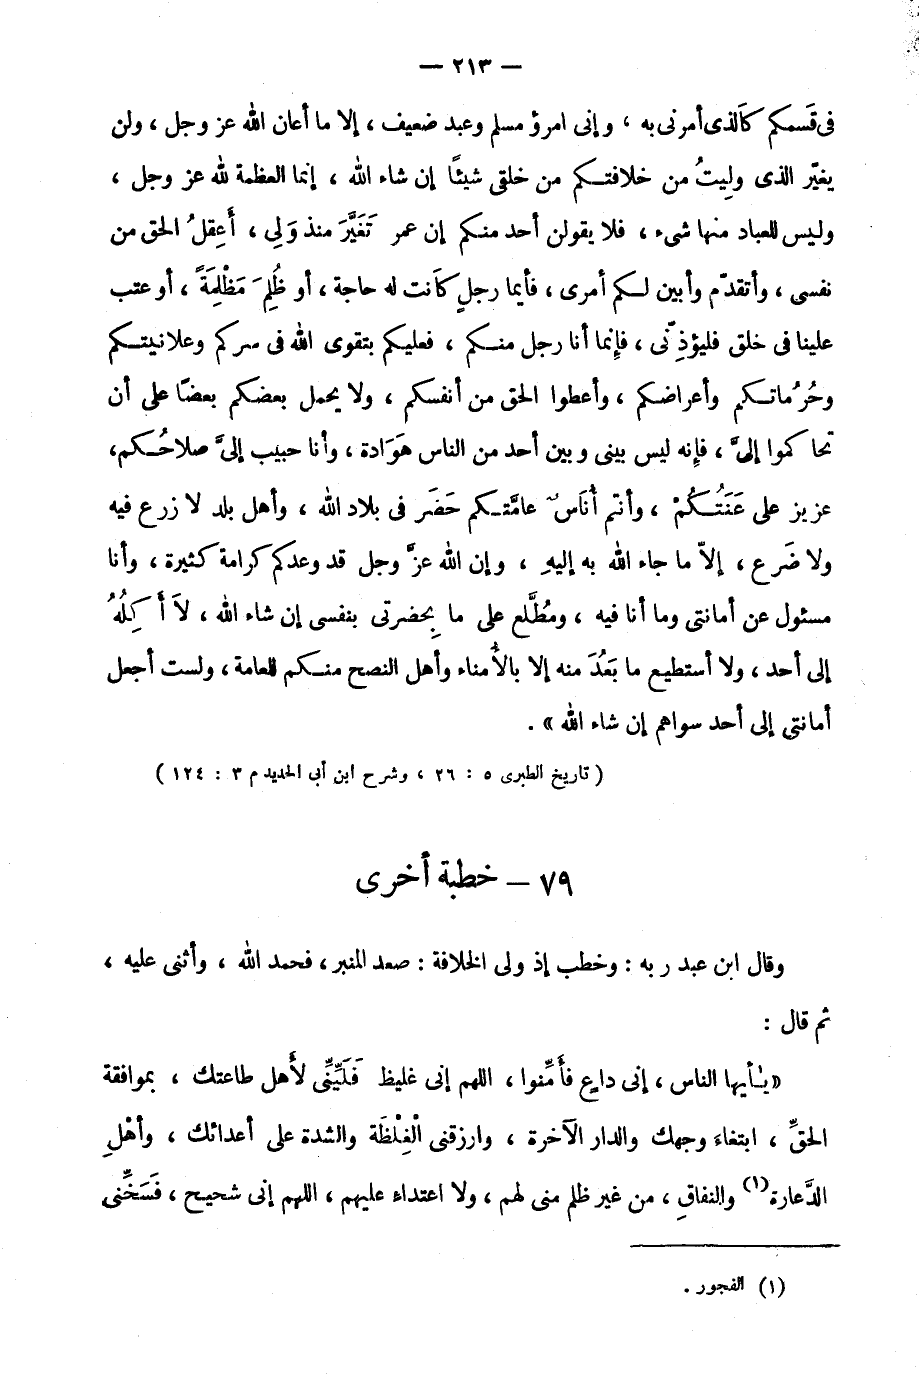 — ٢١٣ —
فى قَسمكم كالذى أمرنى به ، وإنى امرؤ مسلم وعبد ضعيف ، إلا ما أعان الله عز وجل ، ولن
يغيّر الذى وليتُ من خلافتكم من خلقى شيئًا إن شاء الله ، إنما العظمة لله عز وجل ،
وليس للعباد منها شىء ، فلا يقولن أحد منكم إن عمر تَغَيَّرَ منذ وَلى ، أَعقلُ الحق من
نفسى ، وأتقدّم وأبين لكم أمرى ، فأيما رجلٍ كانت له حاجة ، أو ظُلِمَ مَظْلِمَةً ، أو عتب
علينا فى خلق فليؤذِنّى ، فإنما أنا رجل منكم ، فعليكم بتقوى الله فى سركم وعلانيتكم
وحُرُماتكم وأعراضكم ، وأعطوا الحق من أنفسكم ، ولا يحمل بعضكم بعضًا على أن
تحاكموا إلىَّ ، فإنه ليس بينى وبين أحد من الناس هَوَادة ، وأنا حبيب إلىَّ صلاحُكم ،
عزيز على عَنَتُكُمْ ، وأنتم أُنَاسٌ عامَّتكم حَضَر فى بلاد الله ، وأهل بلد لا زرع فيه
ولا ضَرع ، إلاّ ما جاء الله به إليهِ ، وإن الله عزَّ وجل قد وعدكم كرامة كثيرة ، وأنا
مسئول عن أمانتى وما أنا فيه ، ومُطَّلع على ما بِحضرتى بنفسى إن شاء الله ، لاَ أَكِلُهُ
إلى أحد ، ولا أستطيع ما بَعُدَ منه إلا بالأُمناء وأهل النصح منكم للعامة ، ولست أجعل
أمانتى إلى أحد سواهم إن شاء الله » .
( تاريخ الطبرى ٥ : ٢٦ ، وشرح ابن أبى الحديد م ٣ : ١٢٤ )
٧٩ – خطبة أخرى
وقال ابن عبد ربه : وخطب إذ ولى الخلافة : صعد المنبر ، فحمد الله ، وأثنى عليه ،
ثم قال :
« يٰأيها الناس ، إنى داعٍ فأَمِّنوا ، اللهم إنى غليظ فَلَيِّنِّى لأهل طاعتك ، بموافقة
الحقِّ ، ابتغاءَ وجهك والدار الآخرة ، وارزقنى الْغِلْظَة والشدة على أعدائك ، وأهْلِ
الدَّعارة(١) والنفاقِ ، من غير ظلم منى لهم ، ولا اعتداء عليهم ، اللهم إنى شحيح ، فَسَخِّنى
(١) الفجور .